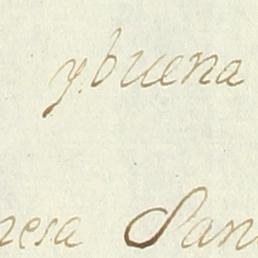 y buena
nesa San